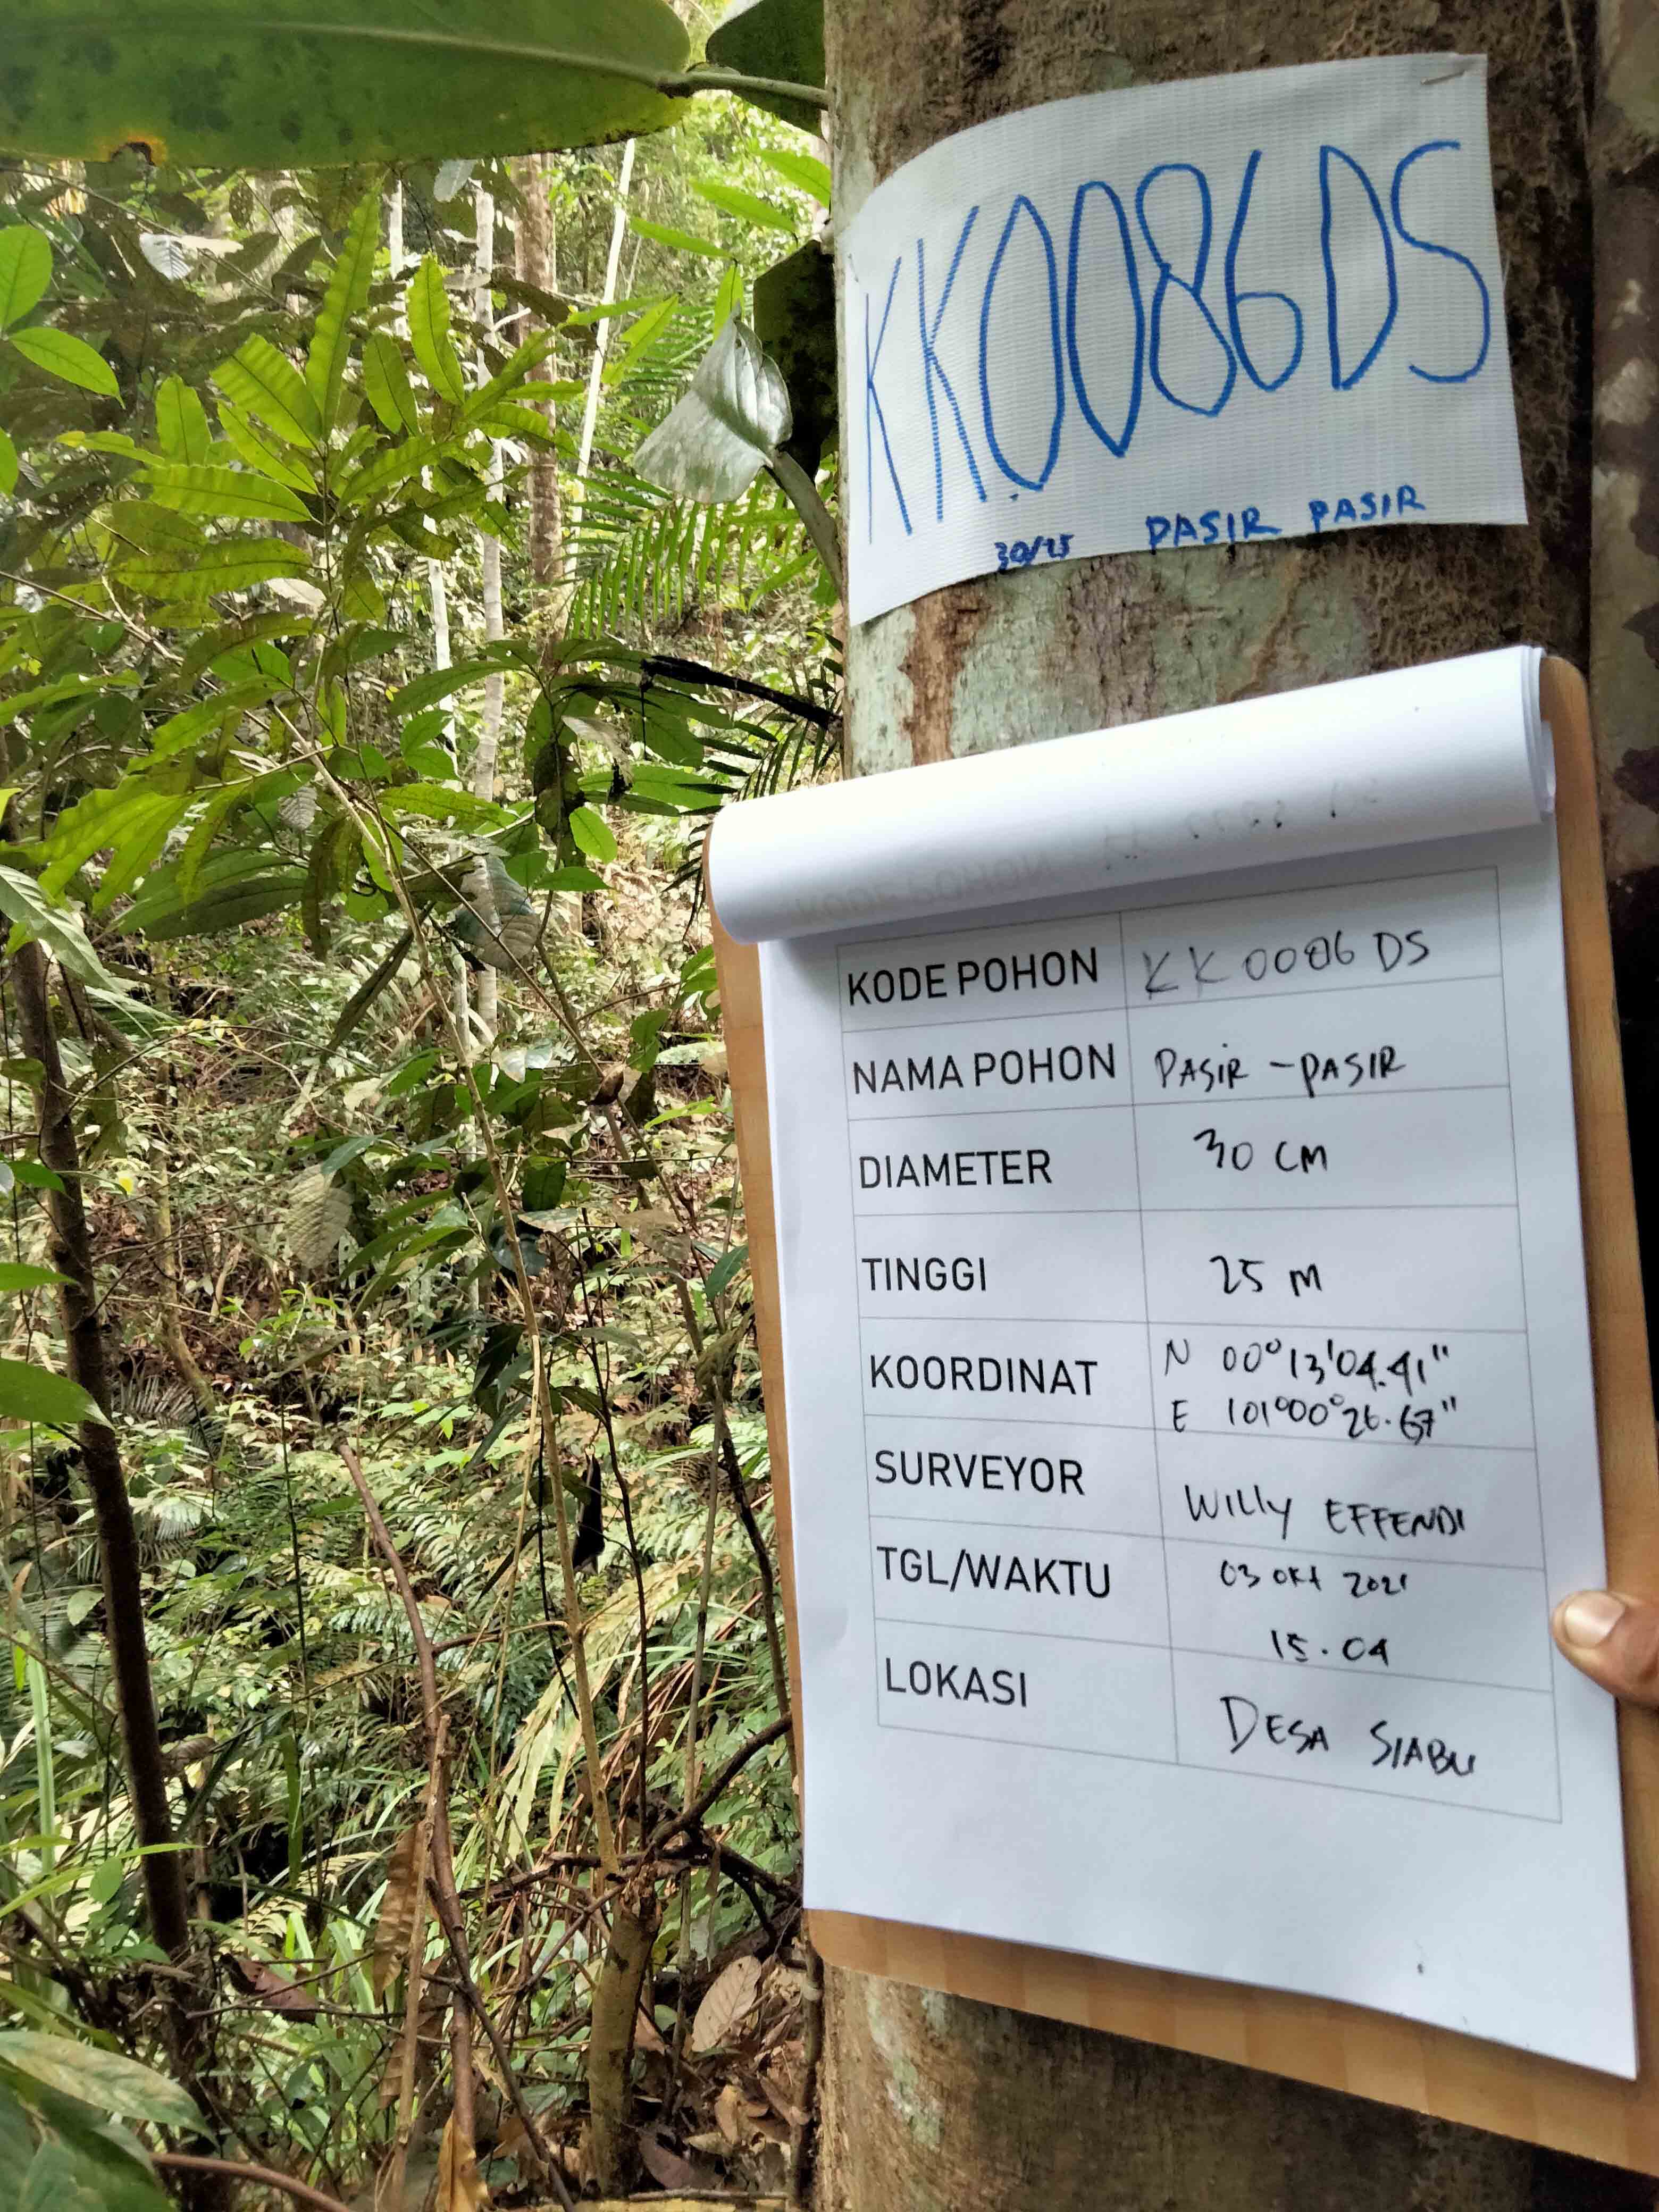 KK0086DS
30/25 PASIR PASIR
KODE POHON KK0086 DS
NAMA POHON PASIR -PASIR
DIAMETER 30 CM
TINGGI 25 M
KOORDINAT N 00°13'04.41"
E 101°00°26.67"
SURVEYOR WILLY EFFENDI
TGL/WAKTU 03 OKt 2021
15.04
LOKASI DESA SIABU